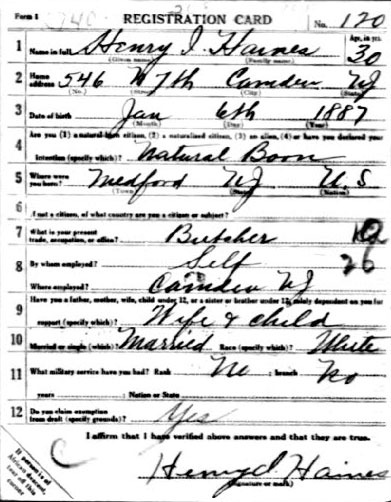 Form 1 REGISTRATION CARD No. 120
1 Name in full Henry I. Haines Age, in yrs. 30
(Given name) (Family name)
2 Home address 546 N 7th Camden NJ
(No.) (Street) (City) (State)
3 Date of birth Jan 6th 1887
(Month) (Day) (Year)
Are you (1) a natural-born citizen, (2) a naturalized citizen, (3) an alien, (4) or have you declared your
4 intention (specify which)? Natural Boon
5 Where were you born? Medford NJ U.S
(Town) (State) (Nation)
6 If not a citizen, of what country are you a citizen or subject?
7 What is your present trade, occupation, or office? Butcher
8 By whom employed? Self 26
Where employed? Camden NJ
9 Have you a father, mother, wife, child under 12, or a sister or brother under 12, solely dependent on you for
support (specify which)? Wife & child
10 Married or single (which)? Married Race (specify which)? White
11 What military service have you had? Rank No ; branch No
years ; Nation or State
12 Do you claim exemption from draft (specify grounds)? Yes
I affirm that I have verified above answers and that they are true.
Henry I Haines
(Signature or mark)
If person is of African descent, tear off this corner